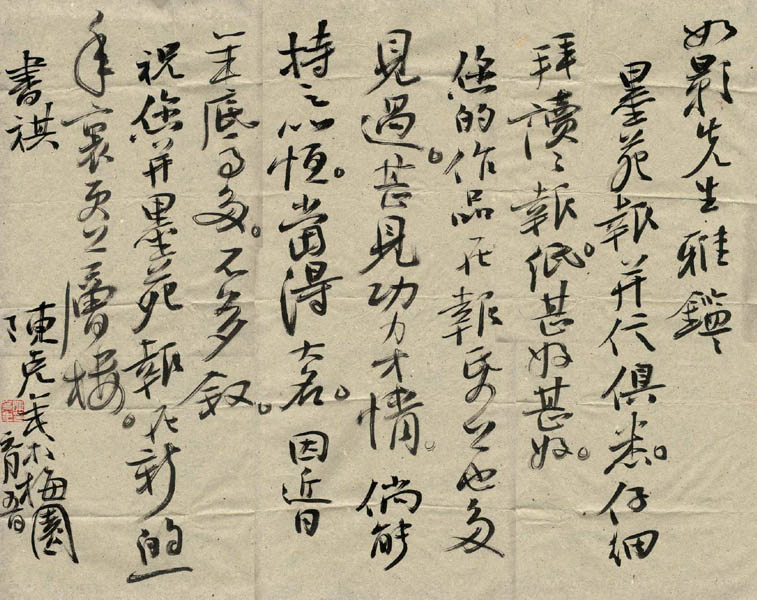 如影先生雅鑑
墨苑報并信俱悉。仔細
拜讀之報紙。甚好甚好。
您的作品在報紙上也多
見過。甚見功力才情。倘能
持之以恒。當得大名。因近日
年底事多。不多敘。
祝您并墨苑報在新的一
年裏更上層樓。
書祺
陳虎
梅園